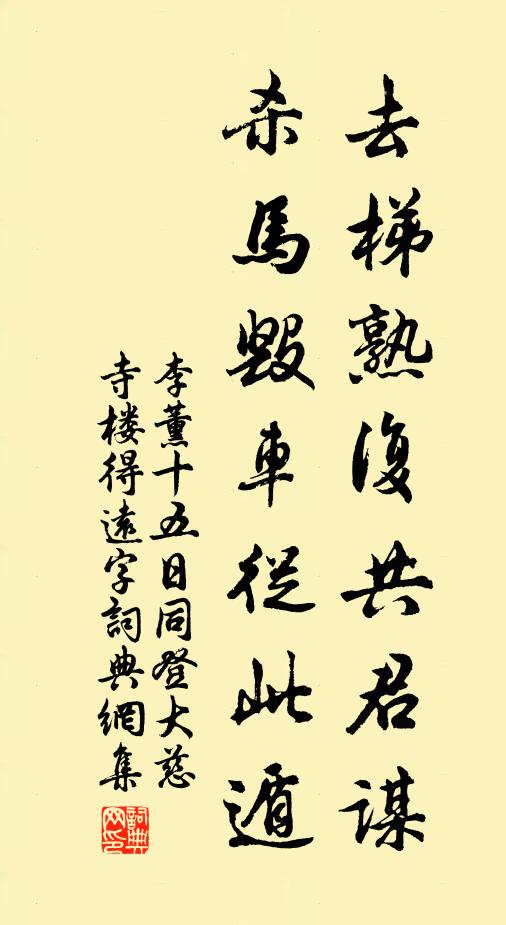 去梯熟復共君謀
杀馬毁車從此遁
李薰十五日同登大慈
寺楼得遠字詞典網集
詞典
网印